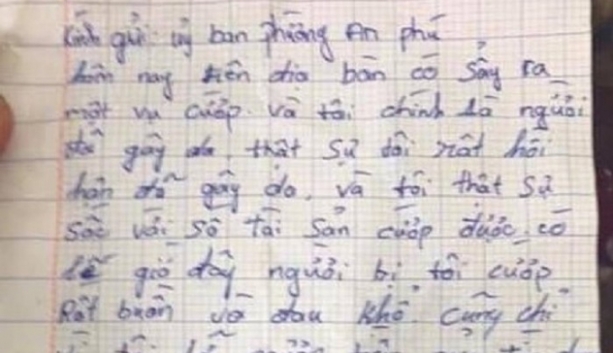 Kính gửi: uỷ ban phường An phú
hôm nay trên địa bàn có sảy ra
một vụ cướp. và tôi chính là người
đã gây ra, thật sự tôi rất hối
hận đã gây do, và tôi thật sự
sốc với số tài sản cướp được, có
lẽ giờ đây người bị tôi cướp
Rất buồn và đau khổ. cũng chỉ